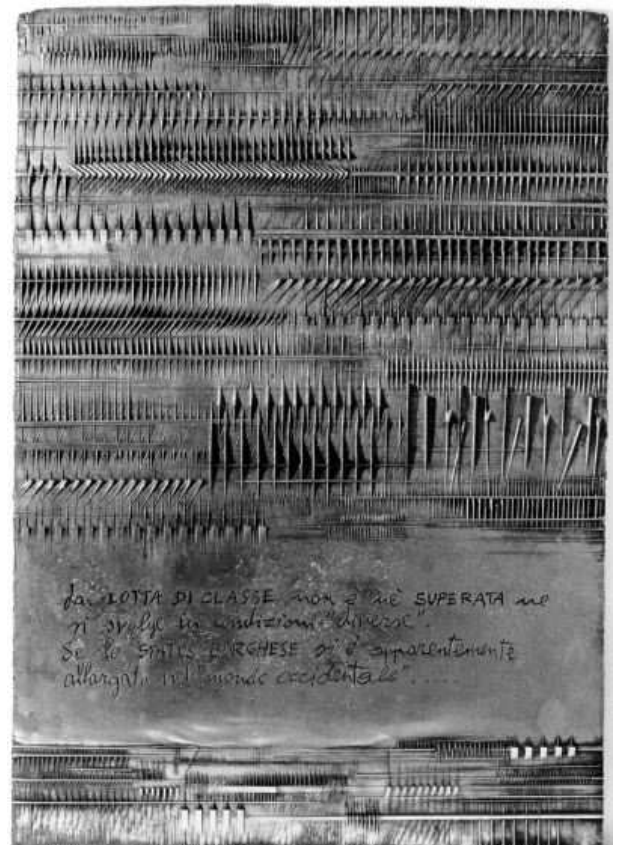 La LOTTA DI CLASSE non è nè SUPERATA ne
si svolge in condizioni "diverse".
Se lo BORGHESE si è apparentemente
allargato nel mondo occidentale".....